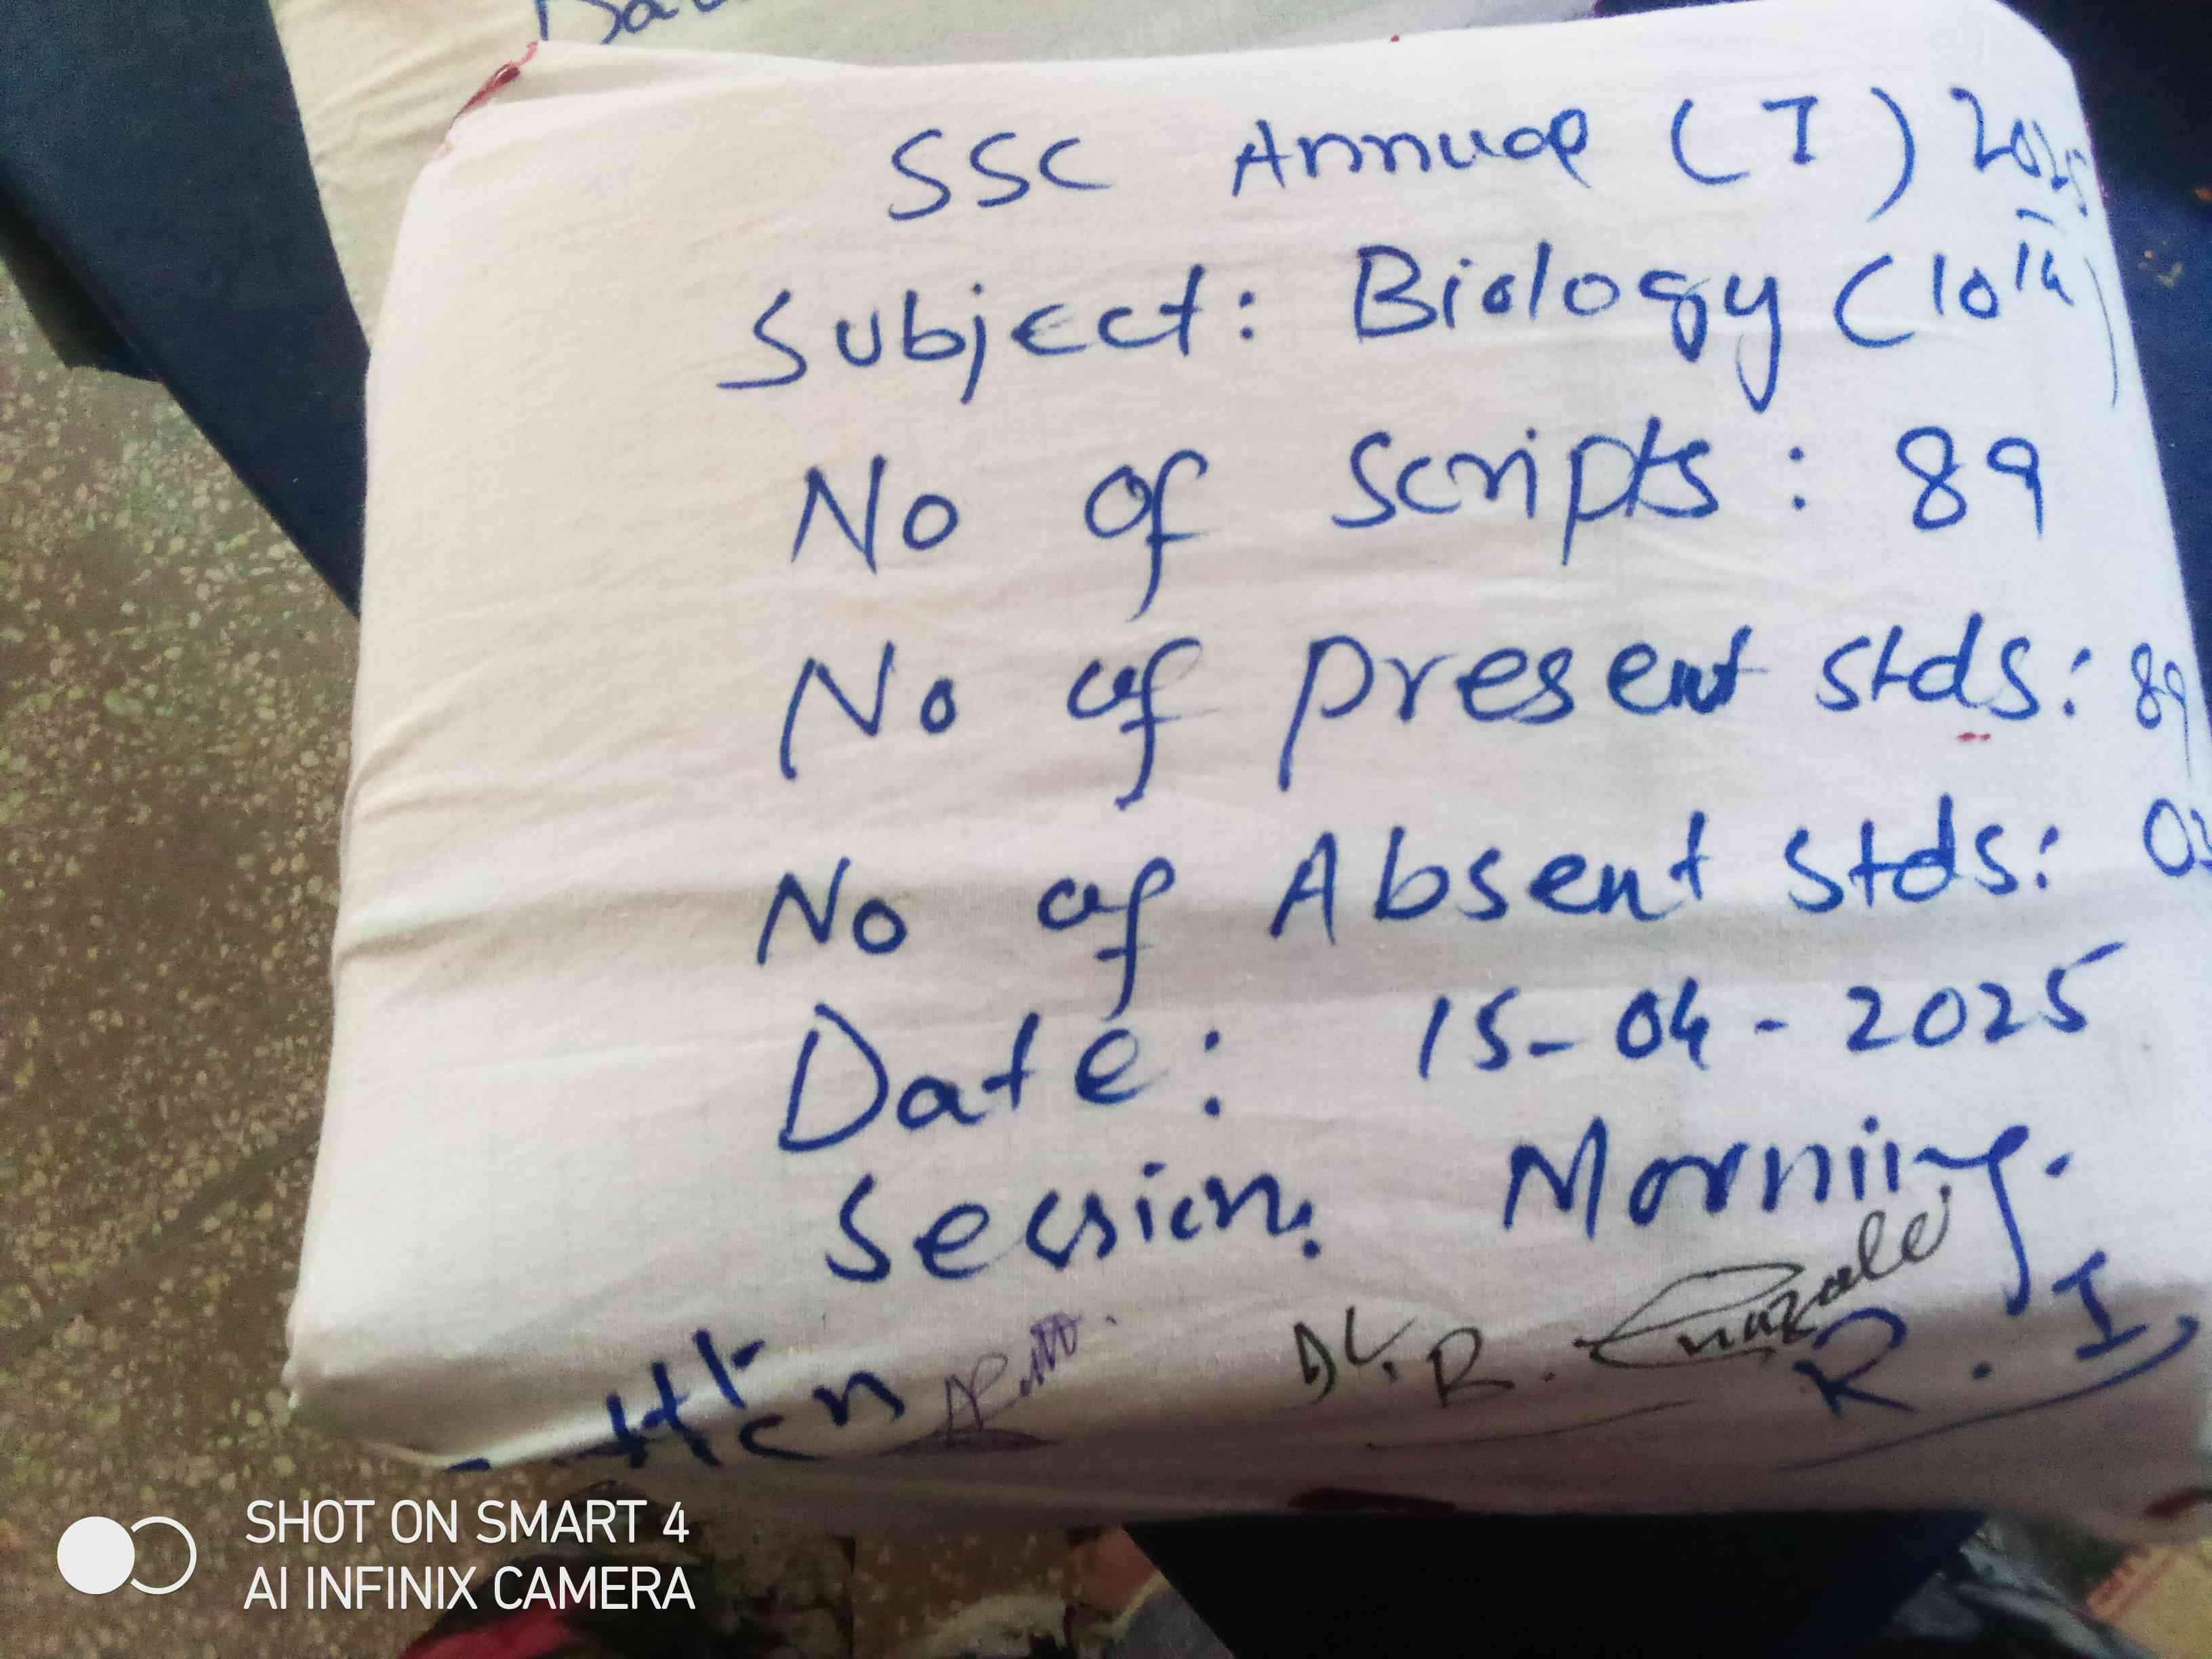 SSC Annual (I) 2025
Subject: Biology (10th)
No of Scripts: 89
No of present stds: 89
No of Absent stds: 03
Date: 15-04-2025
Session: Morning.
R. I,
SHOT ON SMART 4
AI INFINIX CAMERA